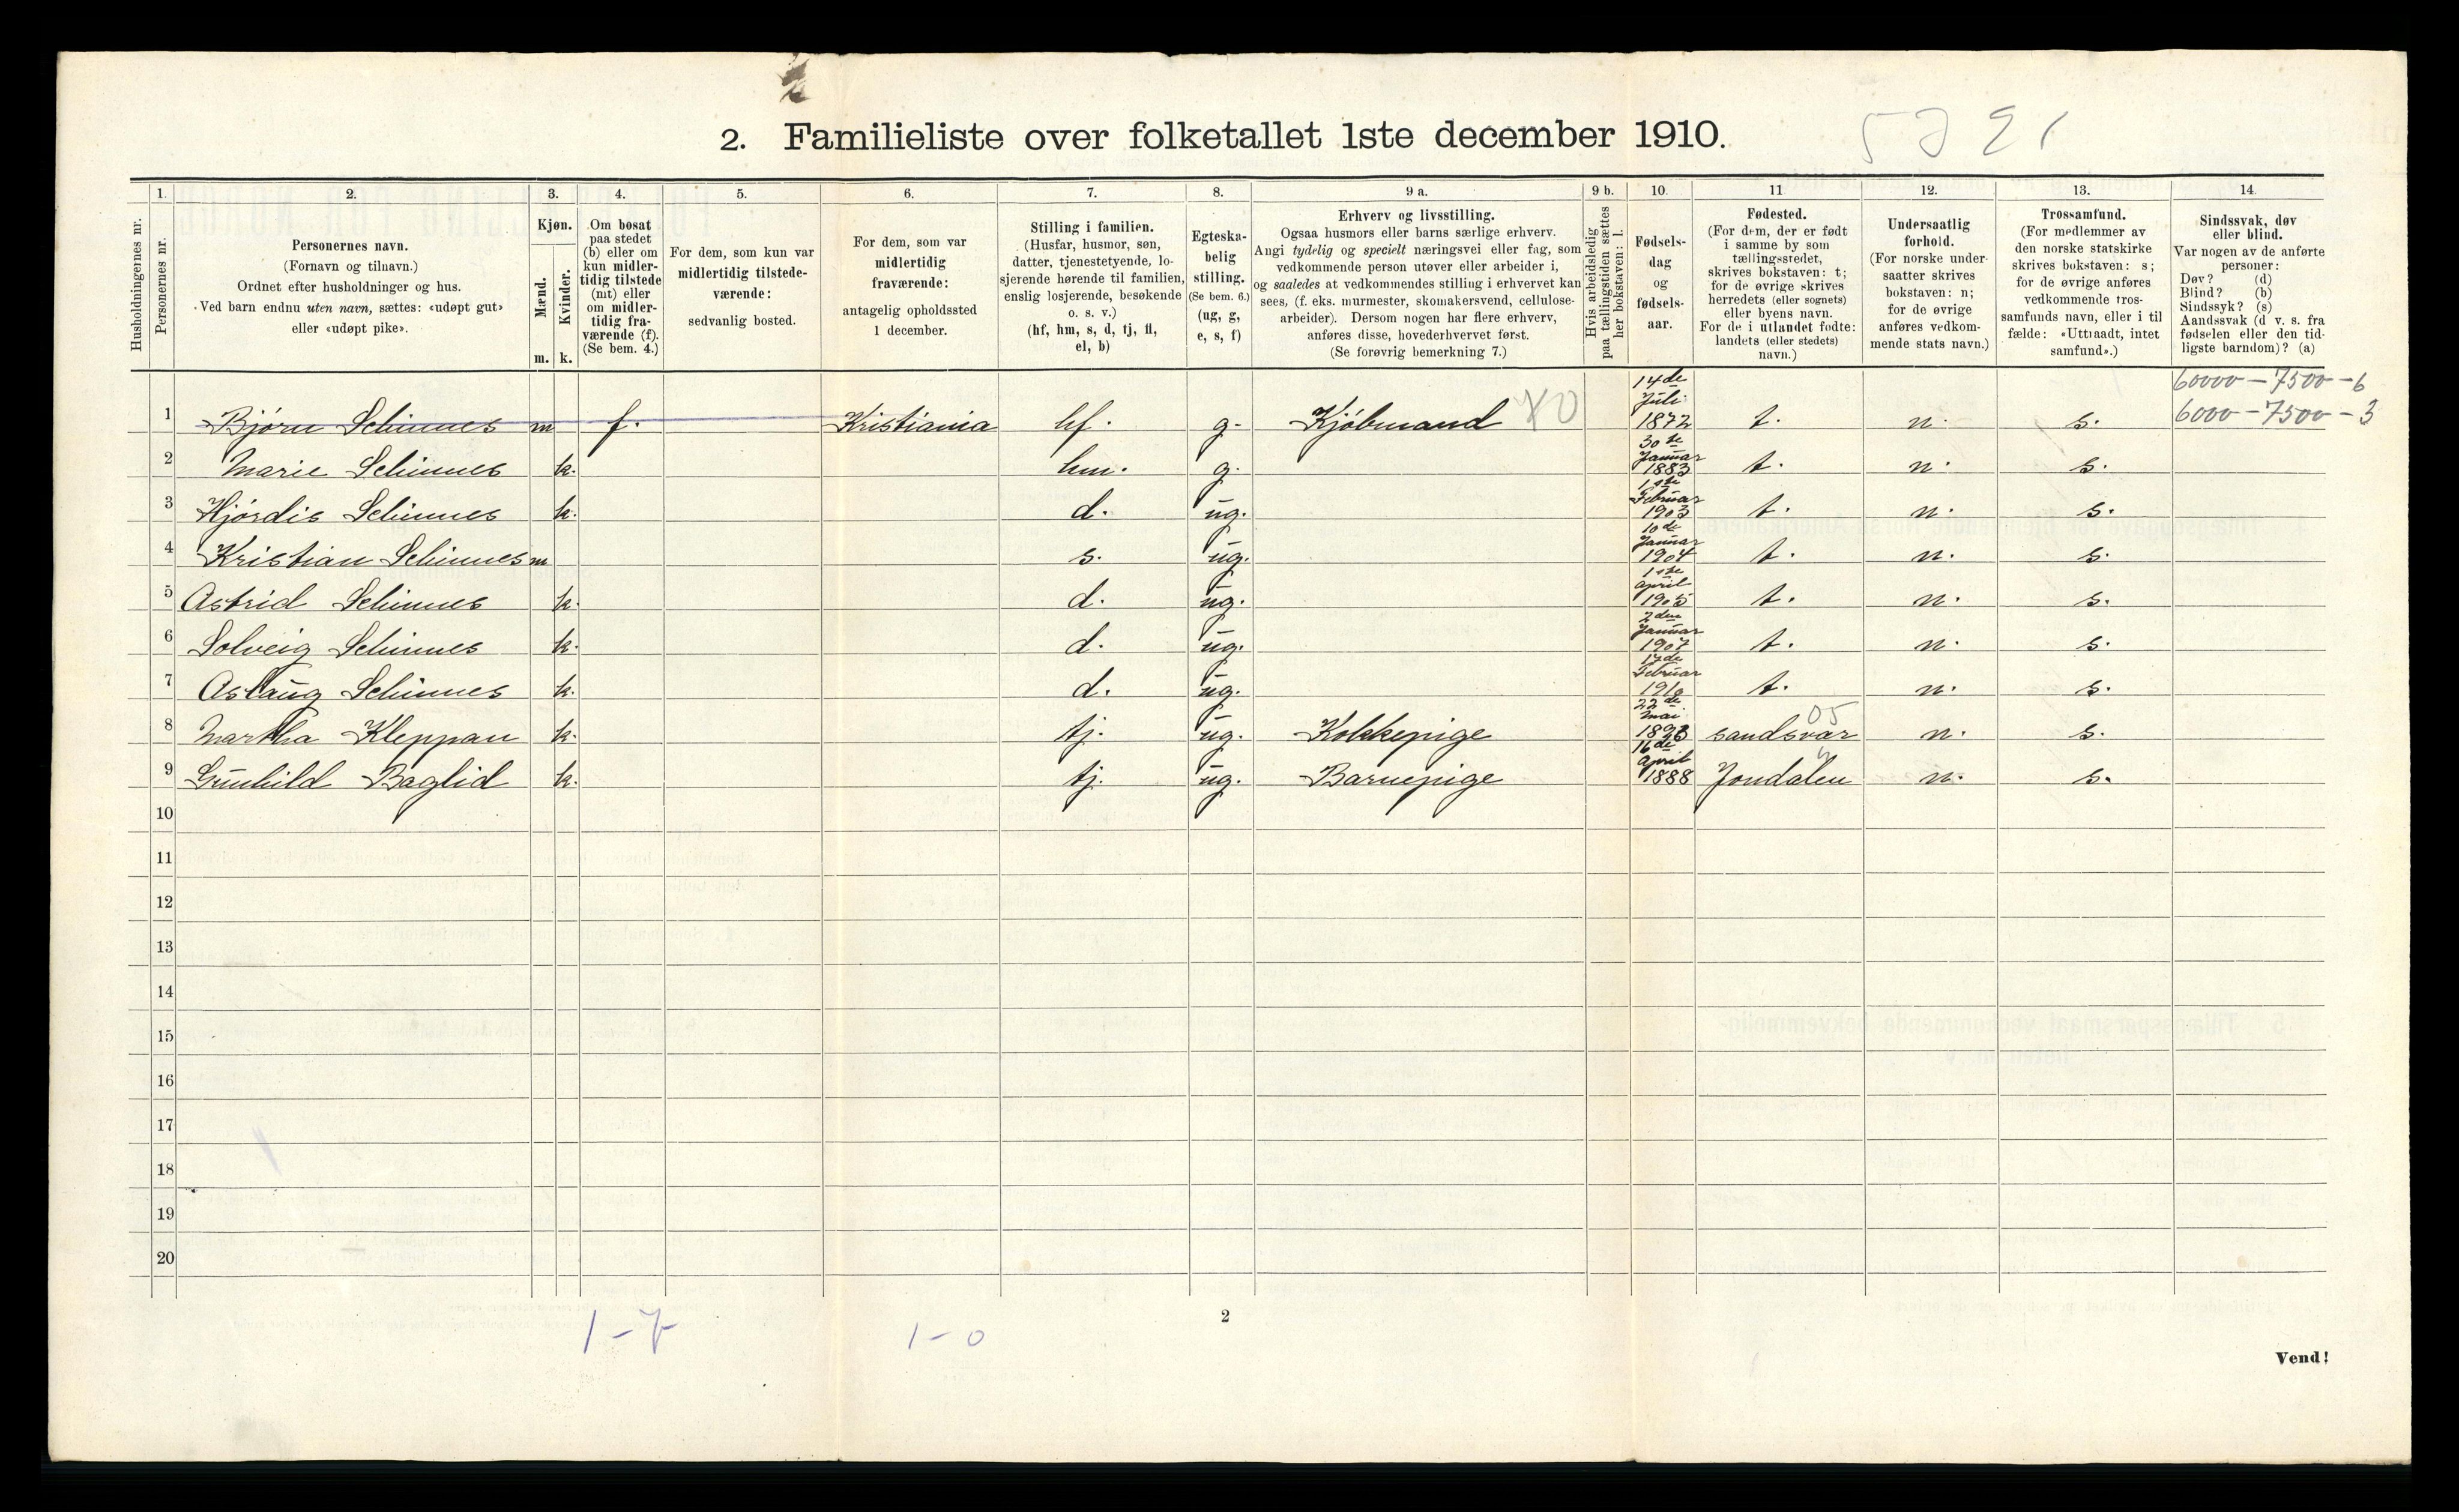 2. Familieliste over folketallet 1ste december 1910.
1. 2. 3. 4. 5. 6. 7. 8. 9 a. 9 b. 10. 11 12. 13. 14.
Husholdningernes nr.
Personernes nr.
Personernes navn.
(Fornavn og tilnavn.)
Ordnet efter husholdninger og hus.
Ved barn endnu uten navn, sættes: «udøpt gut»
eller «udøpt pike».
Kjøn.
Mænd.
Kvinder.
m. k.
Om bosat
paa stedet
(b) eller om
kun midler-
tidig tilstede
(mt) eller
om midler-
tidig fra-
værende (f).
(Se bem. 4.)
For dem, som kun var
midlertidig tilstede-
værende:
sedvanlig bosted.
For dem, som var
midlertidig
fraværende:
antagelig opholdssted
1 december.
Stilling i familien.
(Husfar, husmor, søn,
datter, tjenestetyende, lo-
sjerende hørende til familien,
enslig losjerende, besøkende
o. s. v.)
(hf, hm, s, d, tj, fl,
el, b)
Egteska-
belig
stilling.
(Se bem. 6.)
(ug, g,
e, s, f)
Erhverv og livsstilling.
Ogsaa husmors eller barns særlige erhverv.
Angi tydelig og specielt næringsvei eller fag, som
vedkommende person utøver eller arbeider i,
og saaledes at vedkommendes stilling i erhvervet kan
sees, (f. eks. murmester, skomakersvend, cellulose-
arbeider). Dersom nogen har flere erhverv,
anføres disse, hovederhvervet først.
(Se forøvrig bemerkning 7.)
Hvis arbeidsledig
paa tællingstiden sættes
her bokstaven: l.
Fødsels-
dag
og
fødsels-
aar.
Fødested.
(For dem, der er født
i samme by som
tællingsstedet,
skrives bokstaven: t;
for de øvrige skrives
herredets (eller sognets)
eller byens navn.
For de i utlandet fødte:
landets (eller stedets)
navn.)
Undersaatlig
forhold.
(For norske under-
saatter skrives
bokstaven: n;
for de øvrige
anføres vedkom-
mende stats navn.)
Trossamfund.
(For medlemmer av
den norske statskirke
skrives bokstaven: s;
for de øvrige anføres
vedkommende tros-
samfunds navn, eller i til
fælde: «Uttraadt, intet
samfund».)
Sindssvak, døv
eller blind.
Var nogen av de anførte
personer:
Døv? (d)
Blind? (b)
Sindssyk? (s)
Aandssvak (d v. s. fra
fødselen eller den tid-
ligste barndom)? (a)
60000 - 7500 - 6
6000 - 7500 - 3
1 Bjørn Schinnes m f. Kristiania hf. g. Kjøbmand 14de Juli 1872 t. n. s.
2 Marie Schinnes k. hm. g. 30te Januar 1883 t. n. s.
3 Hjørdis Schinnes k. d. ug. 1ste Februar 1903 t. n. s.
4 Kristian Schinnes m s. ug. 10de Januar 1904 t. n. s.
5 Astrid Schinnes k. d. ug. 1ste april 1905 t. n. s.
6 Solveig Schinnes k. d. ug. 2den Januar 1907 t. n. s.
7 Aslaug Schinnes k. d. ug. 17de Februar 1910 t. n. s.
8 Martha Kleppan k. tj. ug. Kokkepige 22de mai sandsvær n. s.
9 Gunhild Baglid k. tj. ug. Barnepige 16de april 1888 Jondalen n. s.
10
11
12
13
14
15
16
17
18
19
20
1-7 1-0
2
Vend!